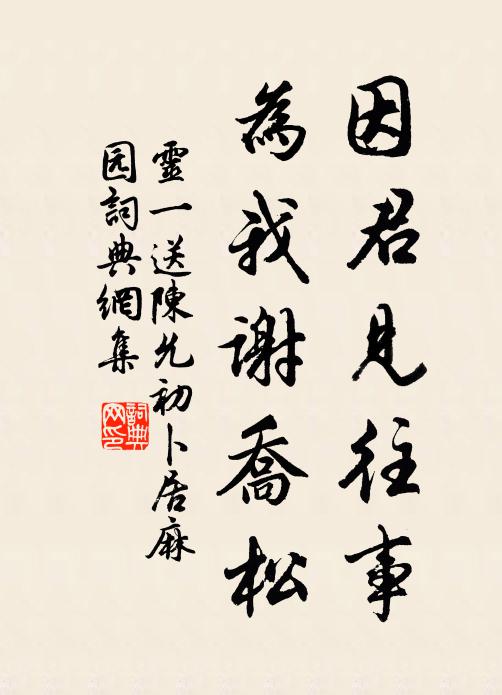 因君見往事
為我謝喬松
靈一送陳允初卜居麻
园詞典網集
詞典
网印